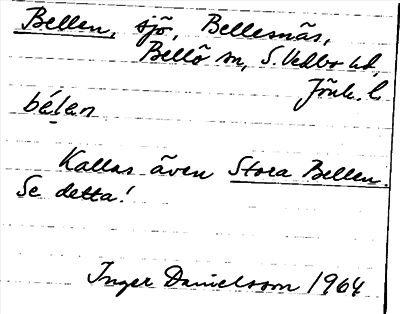 Bellen, sjö, Bellesnäs,
Bellö sn, S. Vedbo hd,
Jönk. l.
bélen
Kallas även Stora Bellen.
Se detta!
Inger Danielsson 1964